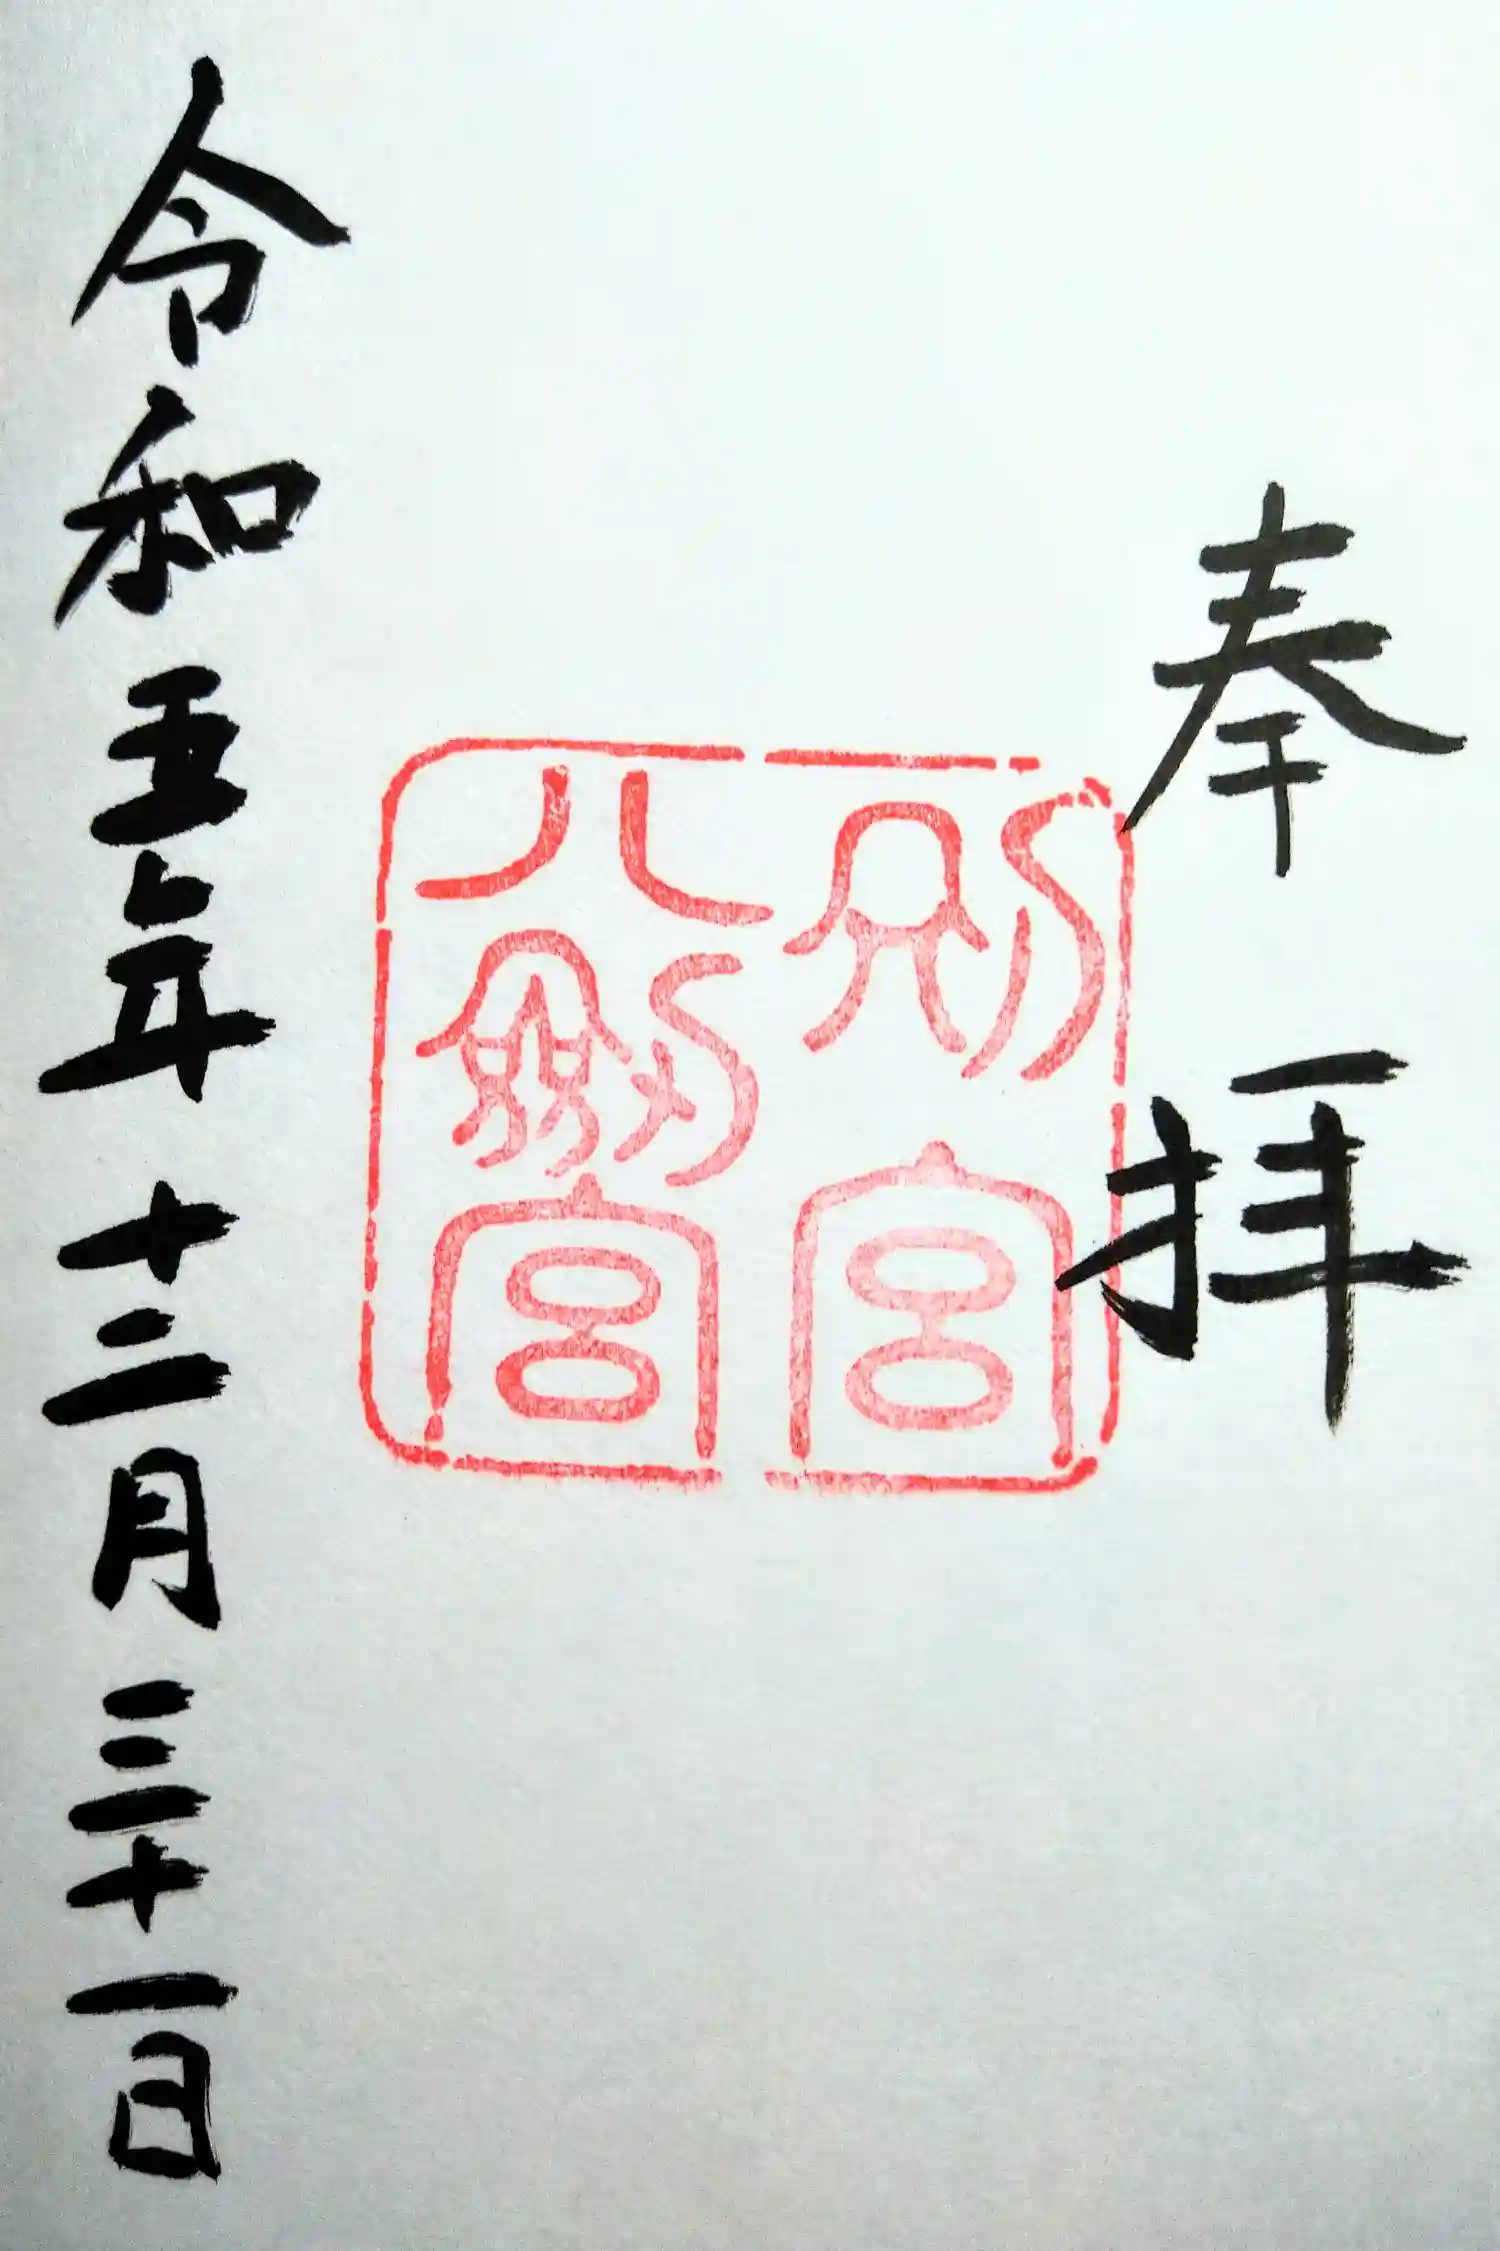 奉拝
別宮
八劔宮
令和五年十二月三十一日